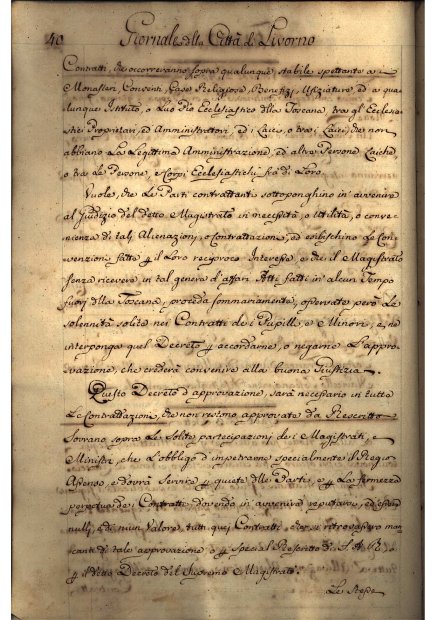 40 Giornale della Città di Livorno
Contratti, che occorreranno sopra qualunque stabile spettante a
Monasteri, Conventi, Case Religiose, Benefizj, Ufiziature, ed a qua-
lunque Istituto, o Luo Pio Ecclesiastico della Toscana, tra gl' Ecclesia-
stici Proprietari, ed Amministratori, ed i Laici, o tra i Laici, che non
abbiano La Legittima Amministrazione, ed altre Persone Laiche,
o tra Le Persone, e Corpi Ecclesiastichi fra di Loro.
Vuole, che Le Parti contrattanti sottoponghino in avvenire
al Giudizio del detto Magistrato in necessità, o utilità, o conve-
nienza di tali Alienazioni, o Contrattazioni, ed esibischino Le Con-
venzioni fatte p il Loro reciproco Interesse, e che il Magistrato
senza ricevere in tal genere d'affari Atti fatti in alcun Tempo
fuori della Toscana, proceda sommariamente, osservate però Le
solennità solite nei Contratti de i Pupilli, e Minori, e, ne
interponga quel Decreto p accordarne, o negarne L'appro-
vazione, che crederà convenire alla buona Giustizia.
Questo Decreto d'approvazione, sarà necessario in tutte
Le Contrattazioni, che non restino approvate da Rescritto
Sovrano sopra Le Solite partecipazioni de i Magistrati, e
Ministri, che L'obbligo d'impetrarne specialmente il Regio
Assenso, e dovrà Servire p quiete delle Parti, e p La fermezza
perpetua dei Contratti dovendo in avvenire reputarsi, ed essere
nulli, e di niun Valore, tutti quei Contratti, che si ritrovassero man-
canti di tale approvazione o p special Rescritto di S. A. R., o
p il detto Decreto del Supremo Magistrato.
Le Stesse